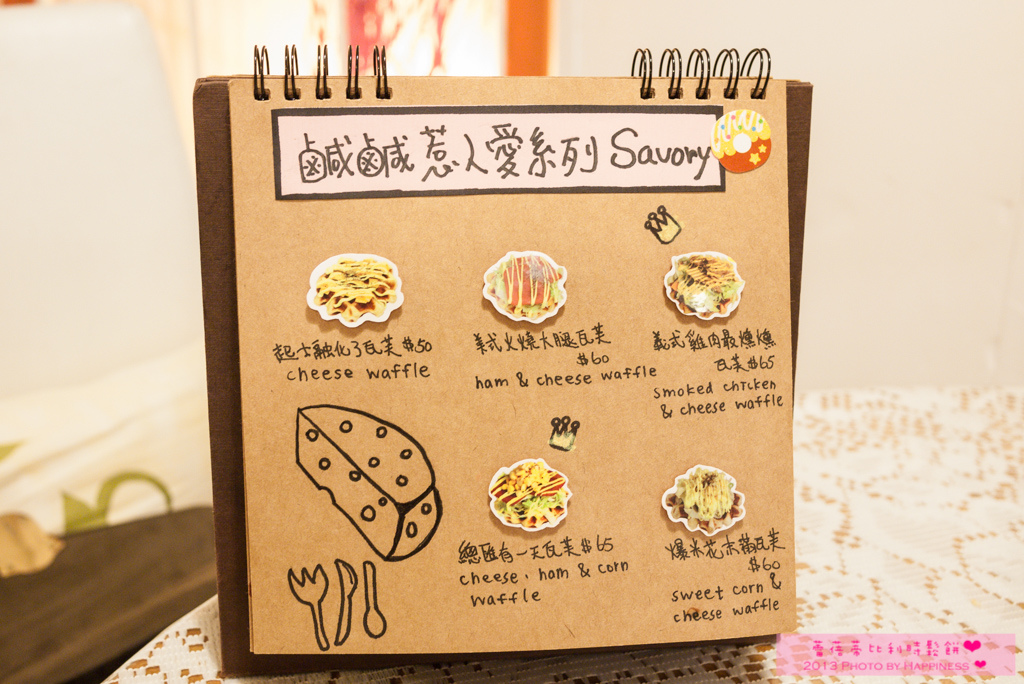 鹹鹹惹人愛系列 Savory
起士融化了瓦芙 $50
cheese waffle
美式火燒大腿瓦芙
$60
ham & cheese waffle
義式雞肉最燻燻
瓦芙 $65
smoked chicken
& cheese waffle
總匯有一天瓦芙 $65
cheese, ham & corn
waffle
爆米花木蘭瓦芙
$60
sweet corn &
cheese waffle
比利時鬆餅
2013 PHOTO BY HAPPINESS